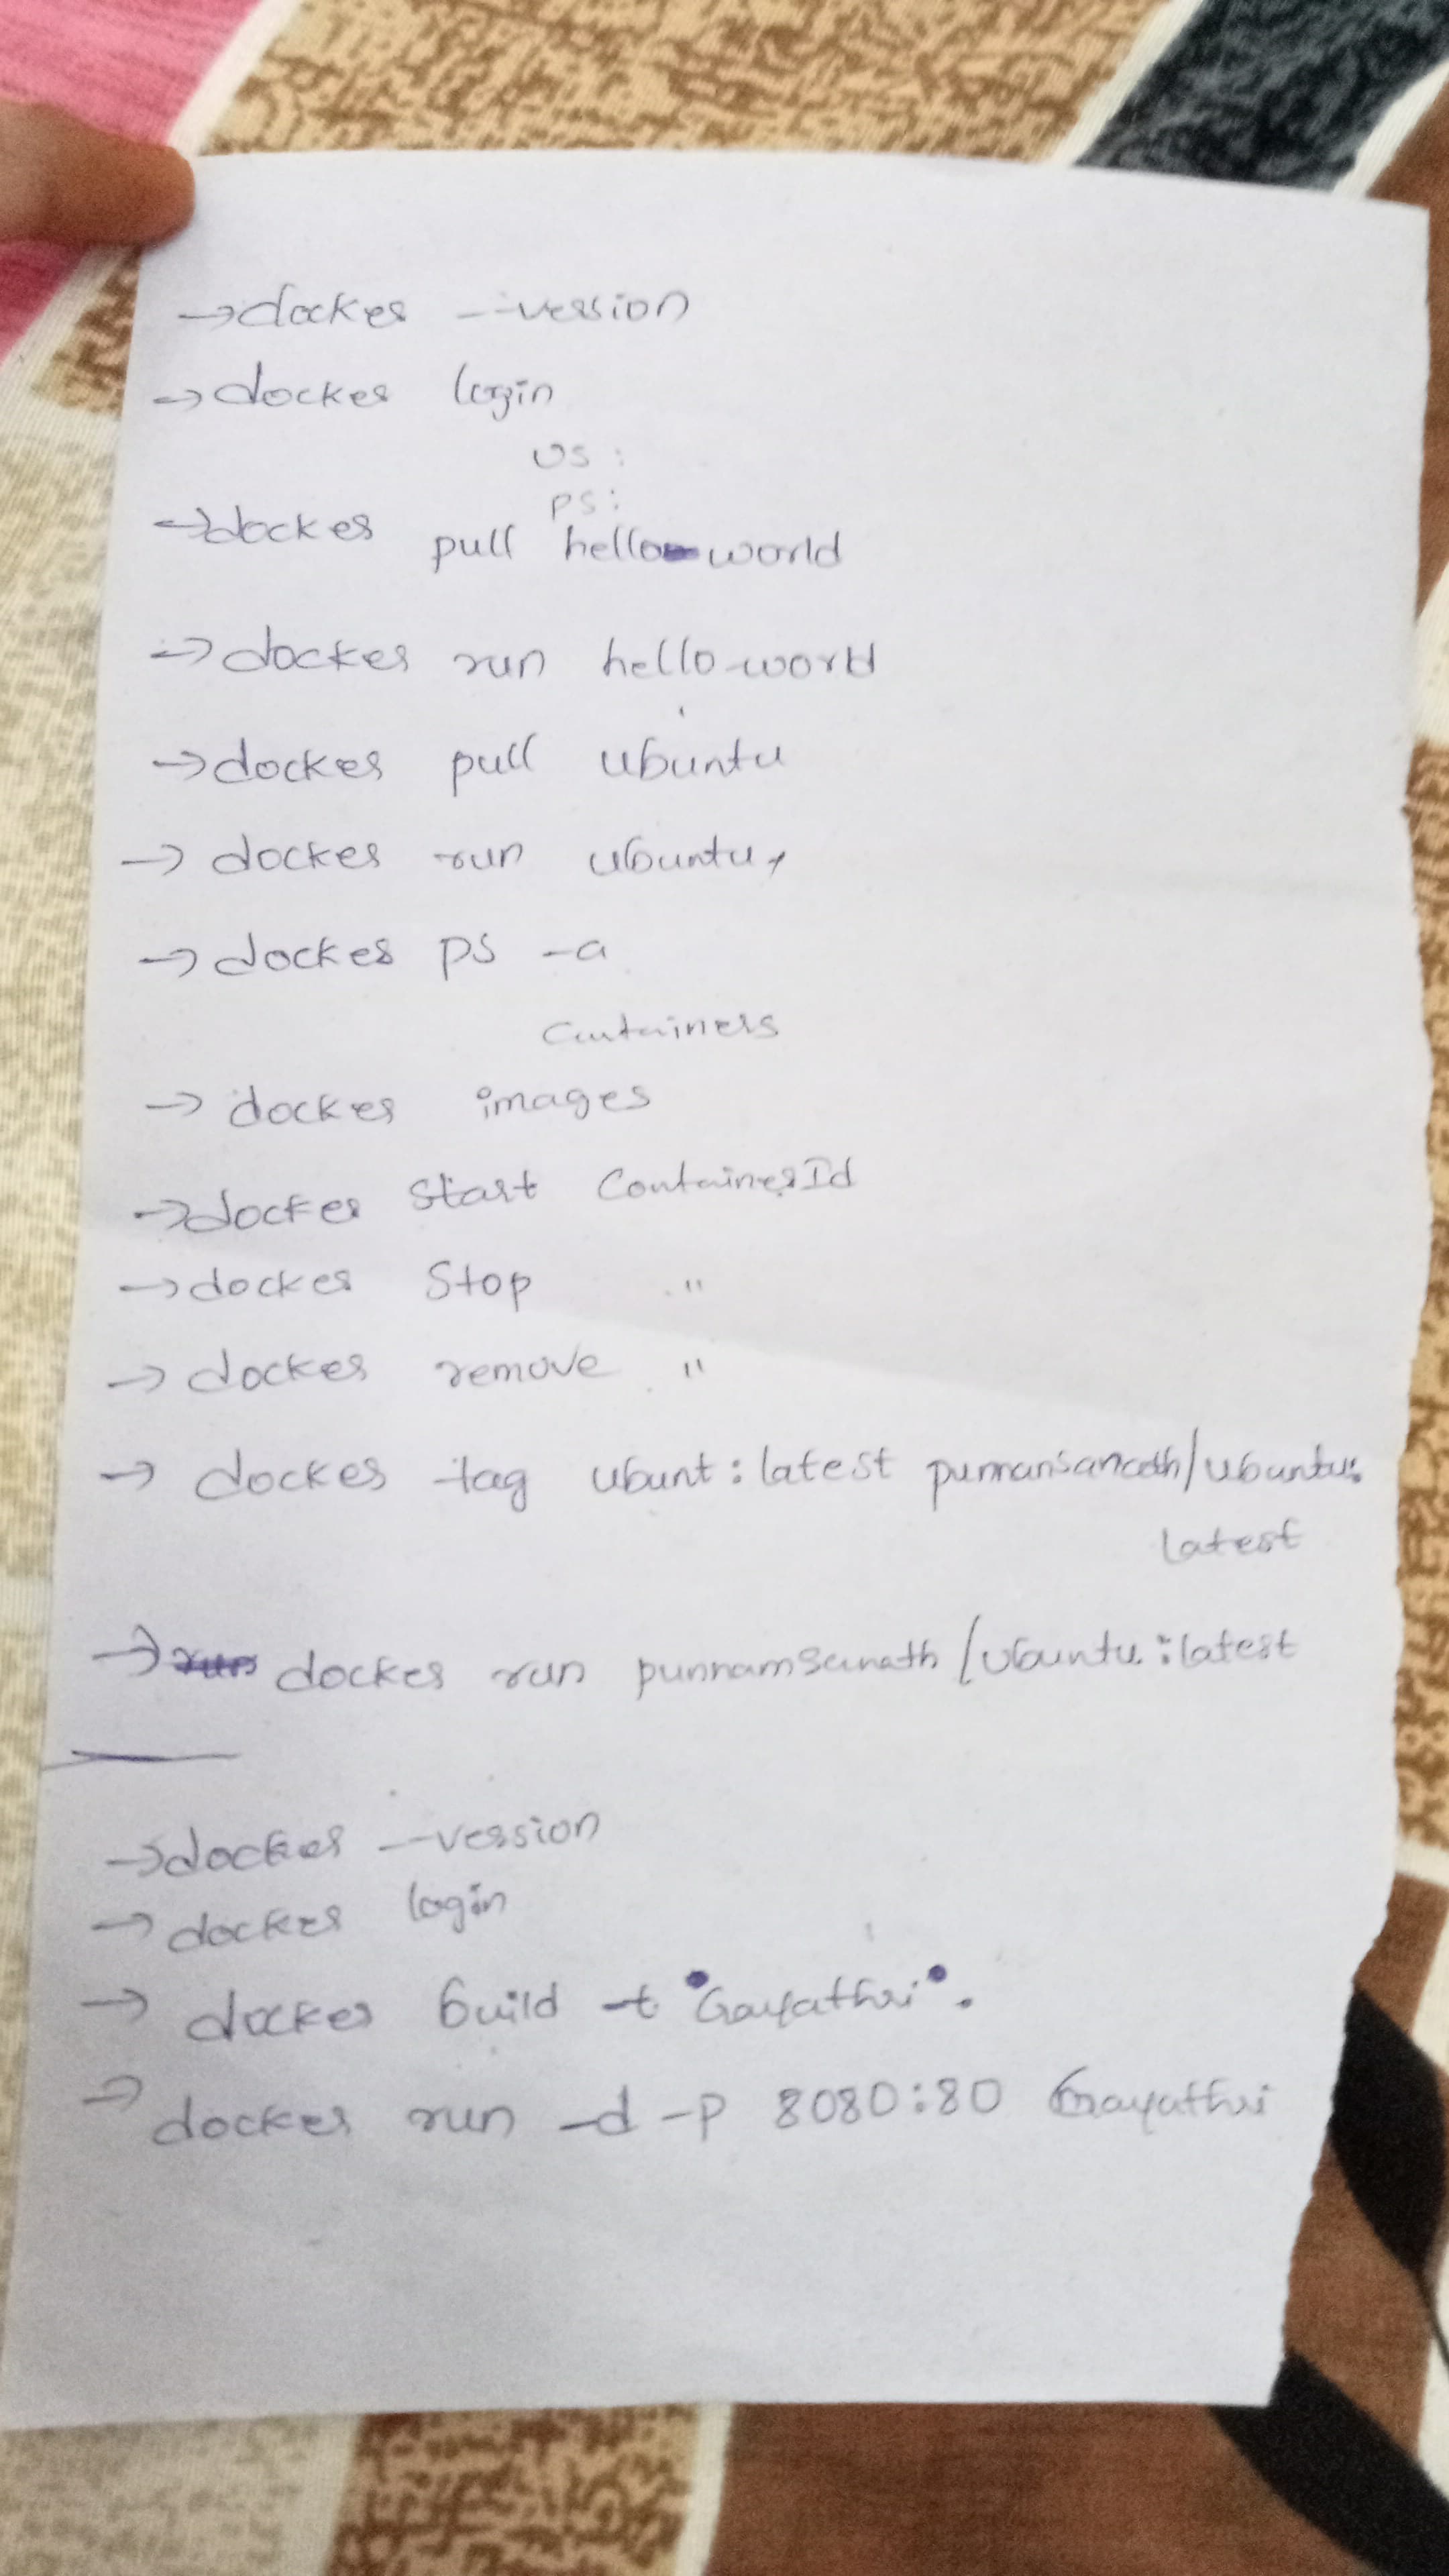 → docker --version
→ docker login
us :
ps :
→ docker pull hello-world
→ docker run hello-world
→ docker pull ubuntu
→ docker run ubuntu
→ docker ps -a
Containers
→ docker images
→ docker start ContainerId
→ docker Stop "
→ docker remove "
→ docker tag ubunt : latest punnamsanath/ubuntu:
latest
→ docker run punnamsanath/ubuntu:latest
→ docker --version
→ docker login
→ docker build -t "Gayathri" .
→ docker run -d -p 8080:80 Gayathri